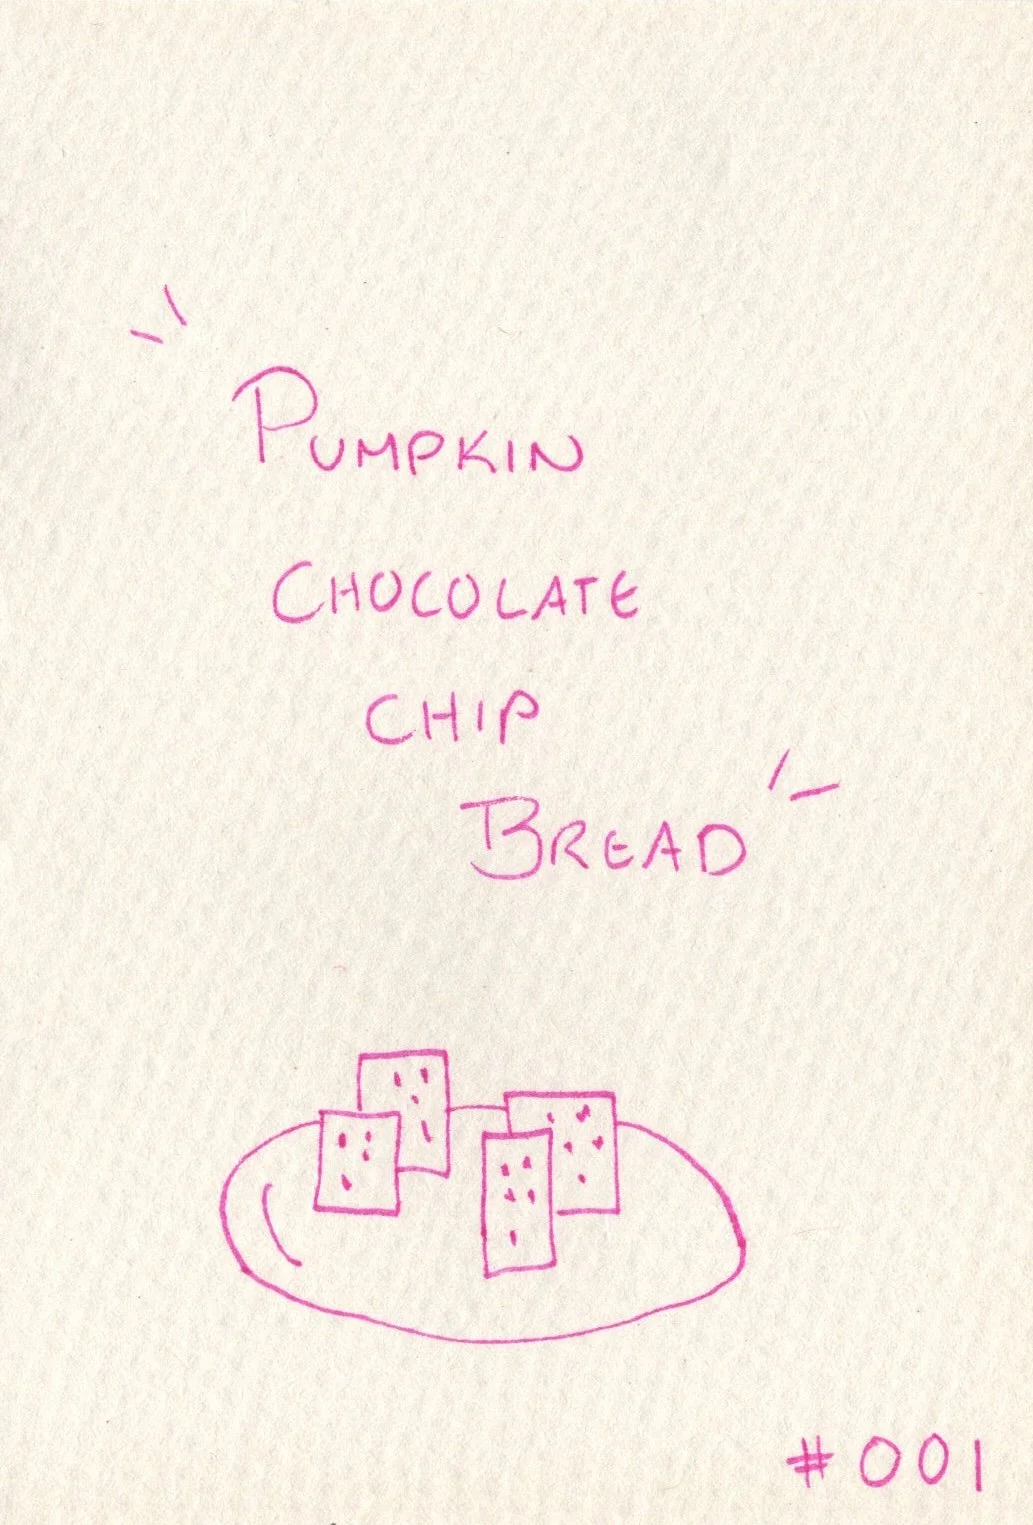 PUMPKIN
CHOCOLATE
CHIP
BREAD
#001